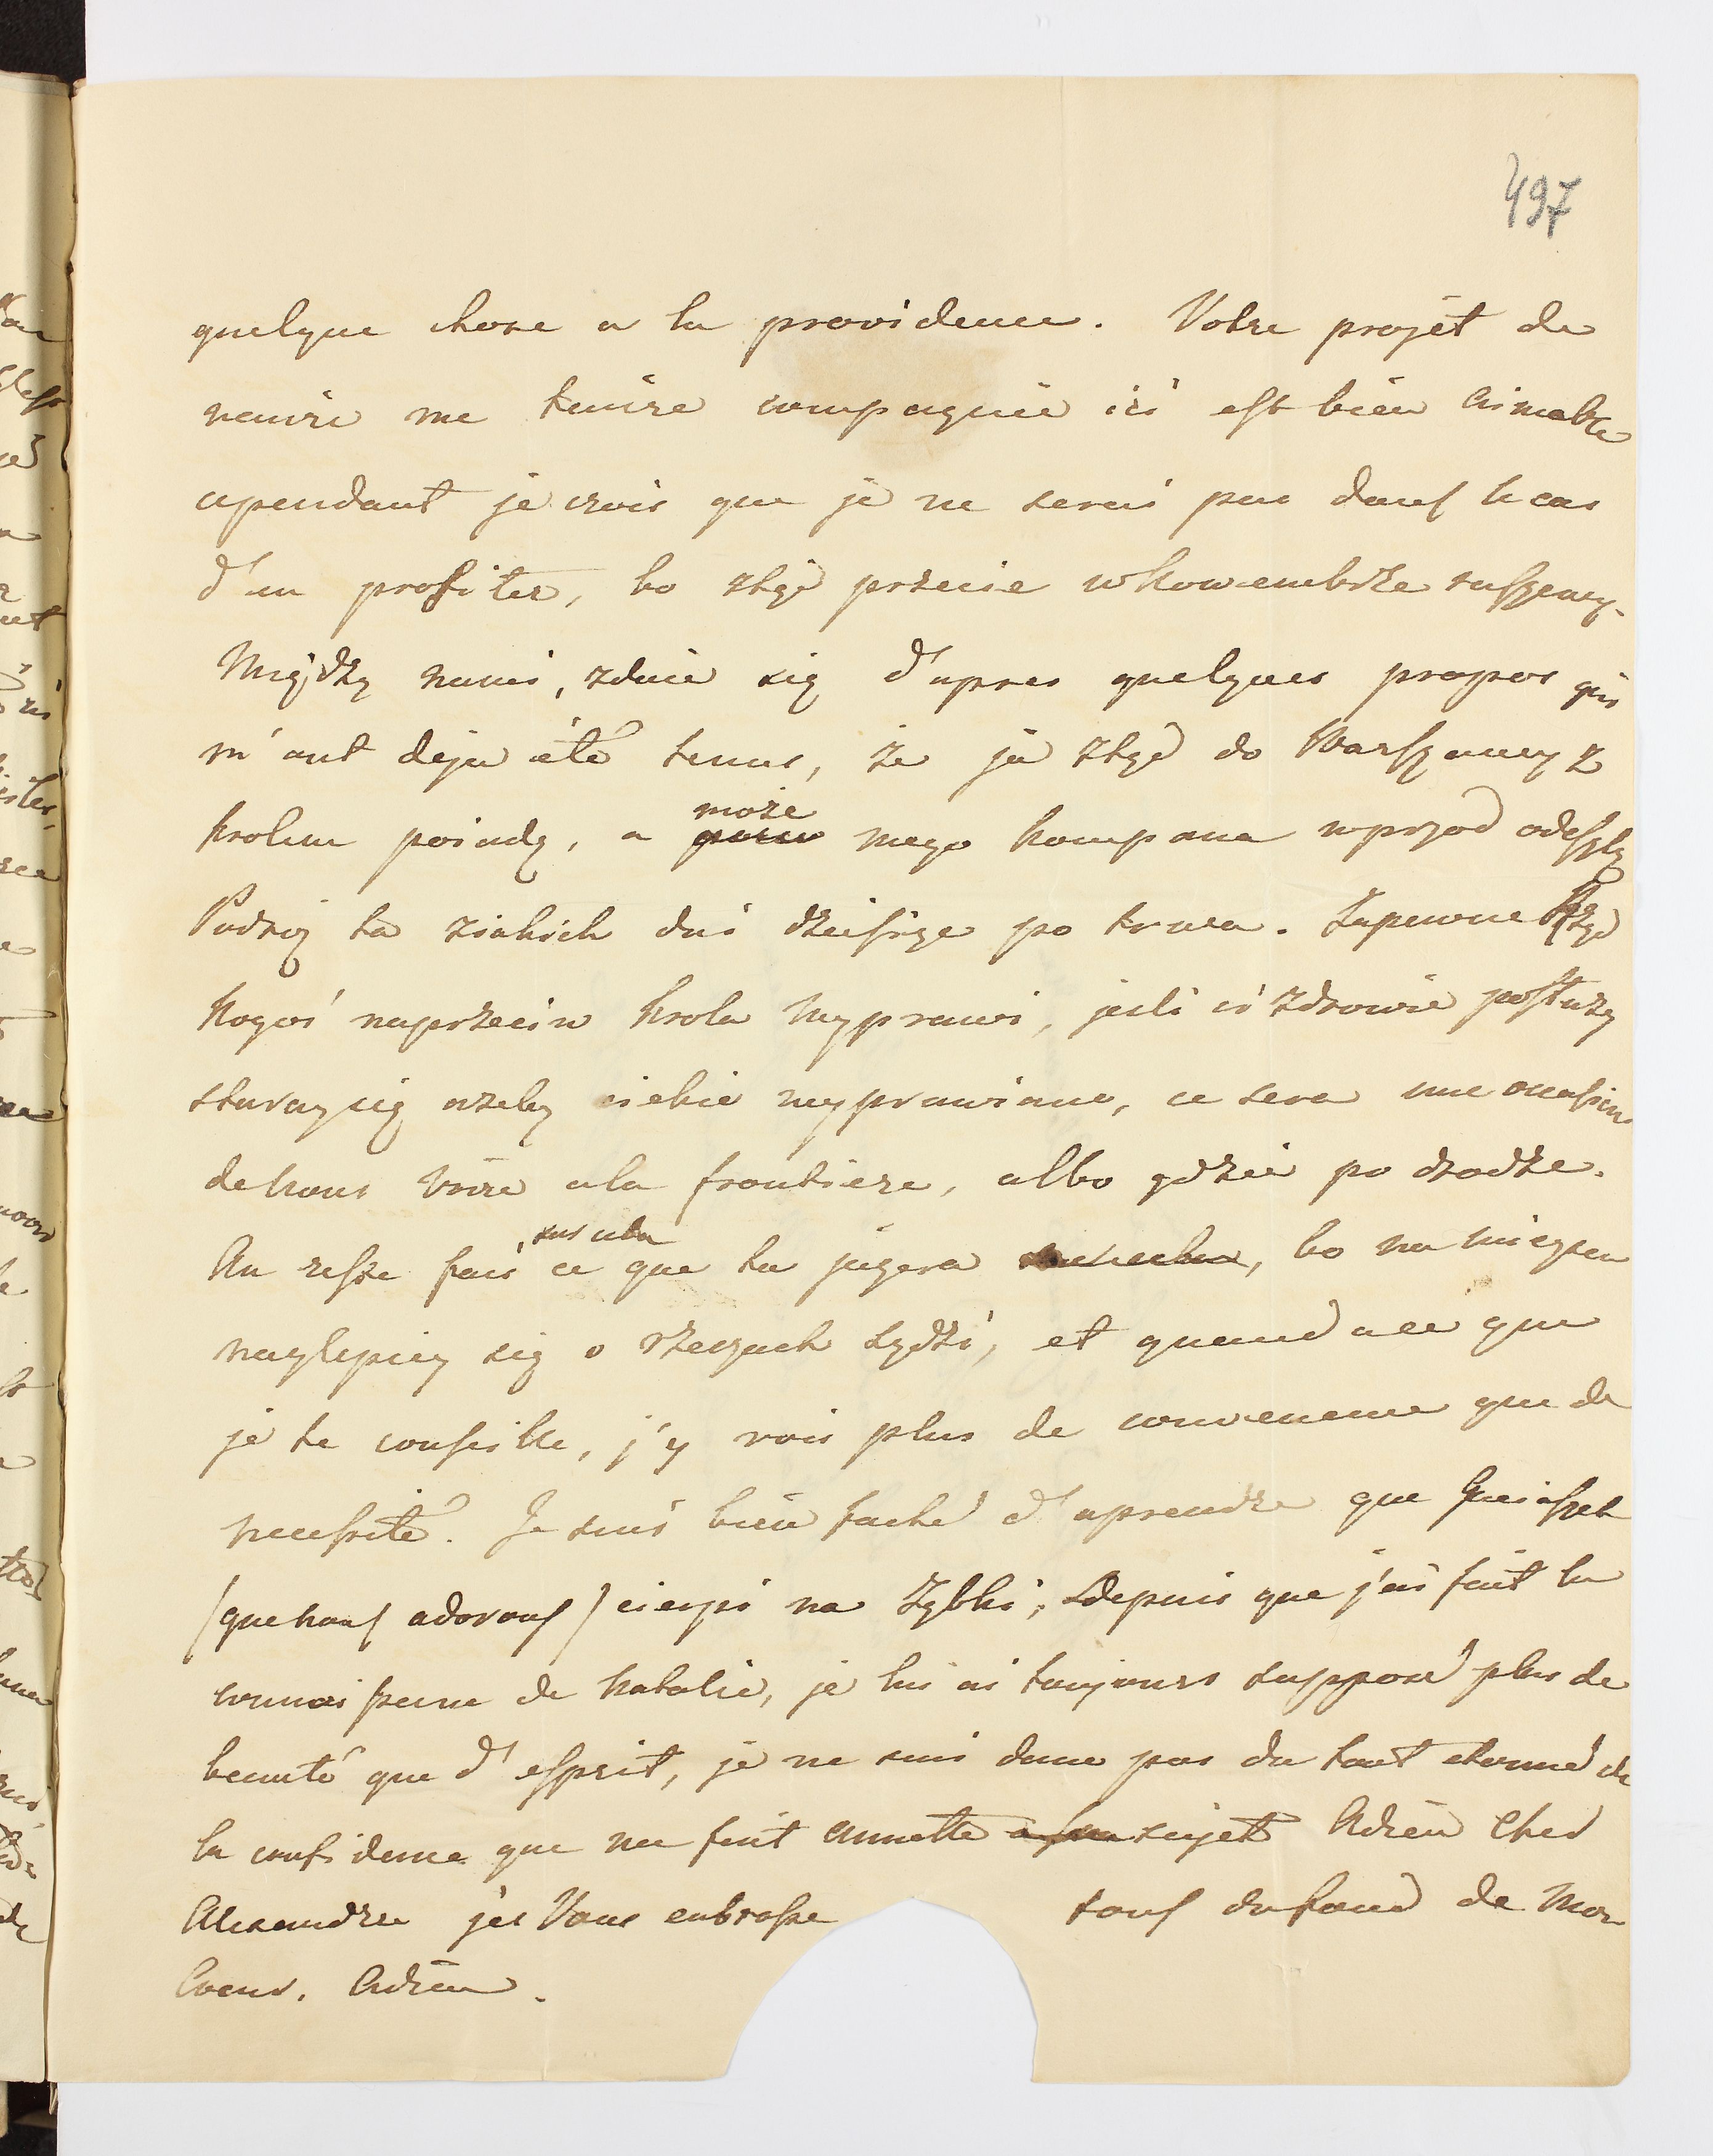 497
quelque chose a la providence. Votre projét de
venire me tenire compagnie ici est bien aimable
cependant je crois que je ne serai pas dans le cas
d'en profiter, bo ztąd przecie w Nowembrze ruszemy.
Między nami, zdaie się d'apres quelques propos qui
m'ont deja été tenus, że ja ztąd do Warszawy z
Krolem poiadę, a może mego kompana wprzod odeszlę
Podroż ta ziakich dni dziesięc po trwa. Zapewne ztąd
kogoś naprzeciw Krola wyprawi, jesli ci zdrowie posłuzy
staray się azeby ciebie wyprawiano, ce sera une occasion
de nous voire a la frontiere, albo gdzie po drodze.
Au reste fais sur cela ce que tu jugera, bo na mieyscu
naylepiey się o rzeczach sądzi, et quand a ce que
je te conseille, j'y vois plus de convenance que de
necessité. Je suis bien faché d'aprendre que
(que nous adorons) cierpi na Ząbki; depuis que j'ai fait la
connaissance de Natalie, je lui ai toujours supposé plus de
beauté que d'esprit, je ne suis donc pas du tout etonné de
la confidence que me fait Annette sujet Adieu Cher
Alexandre je Vous enbrasse tous du fond de Mon
Coeur. Adieu.